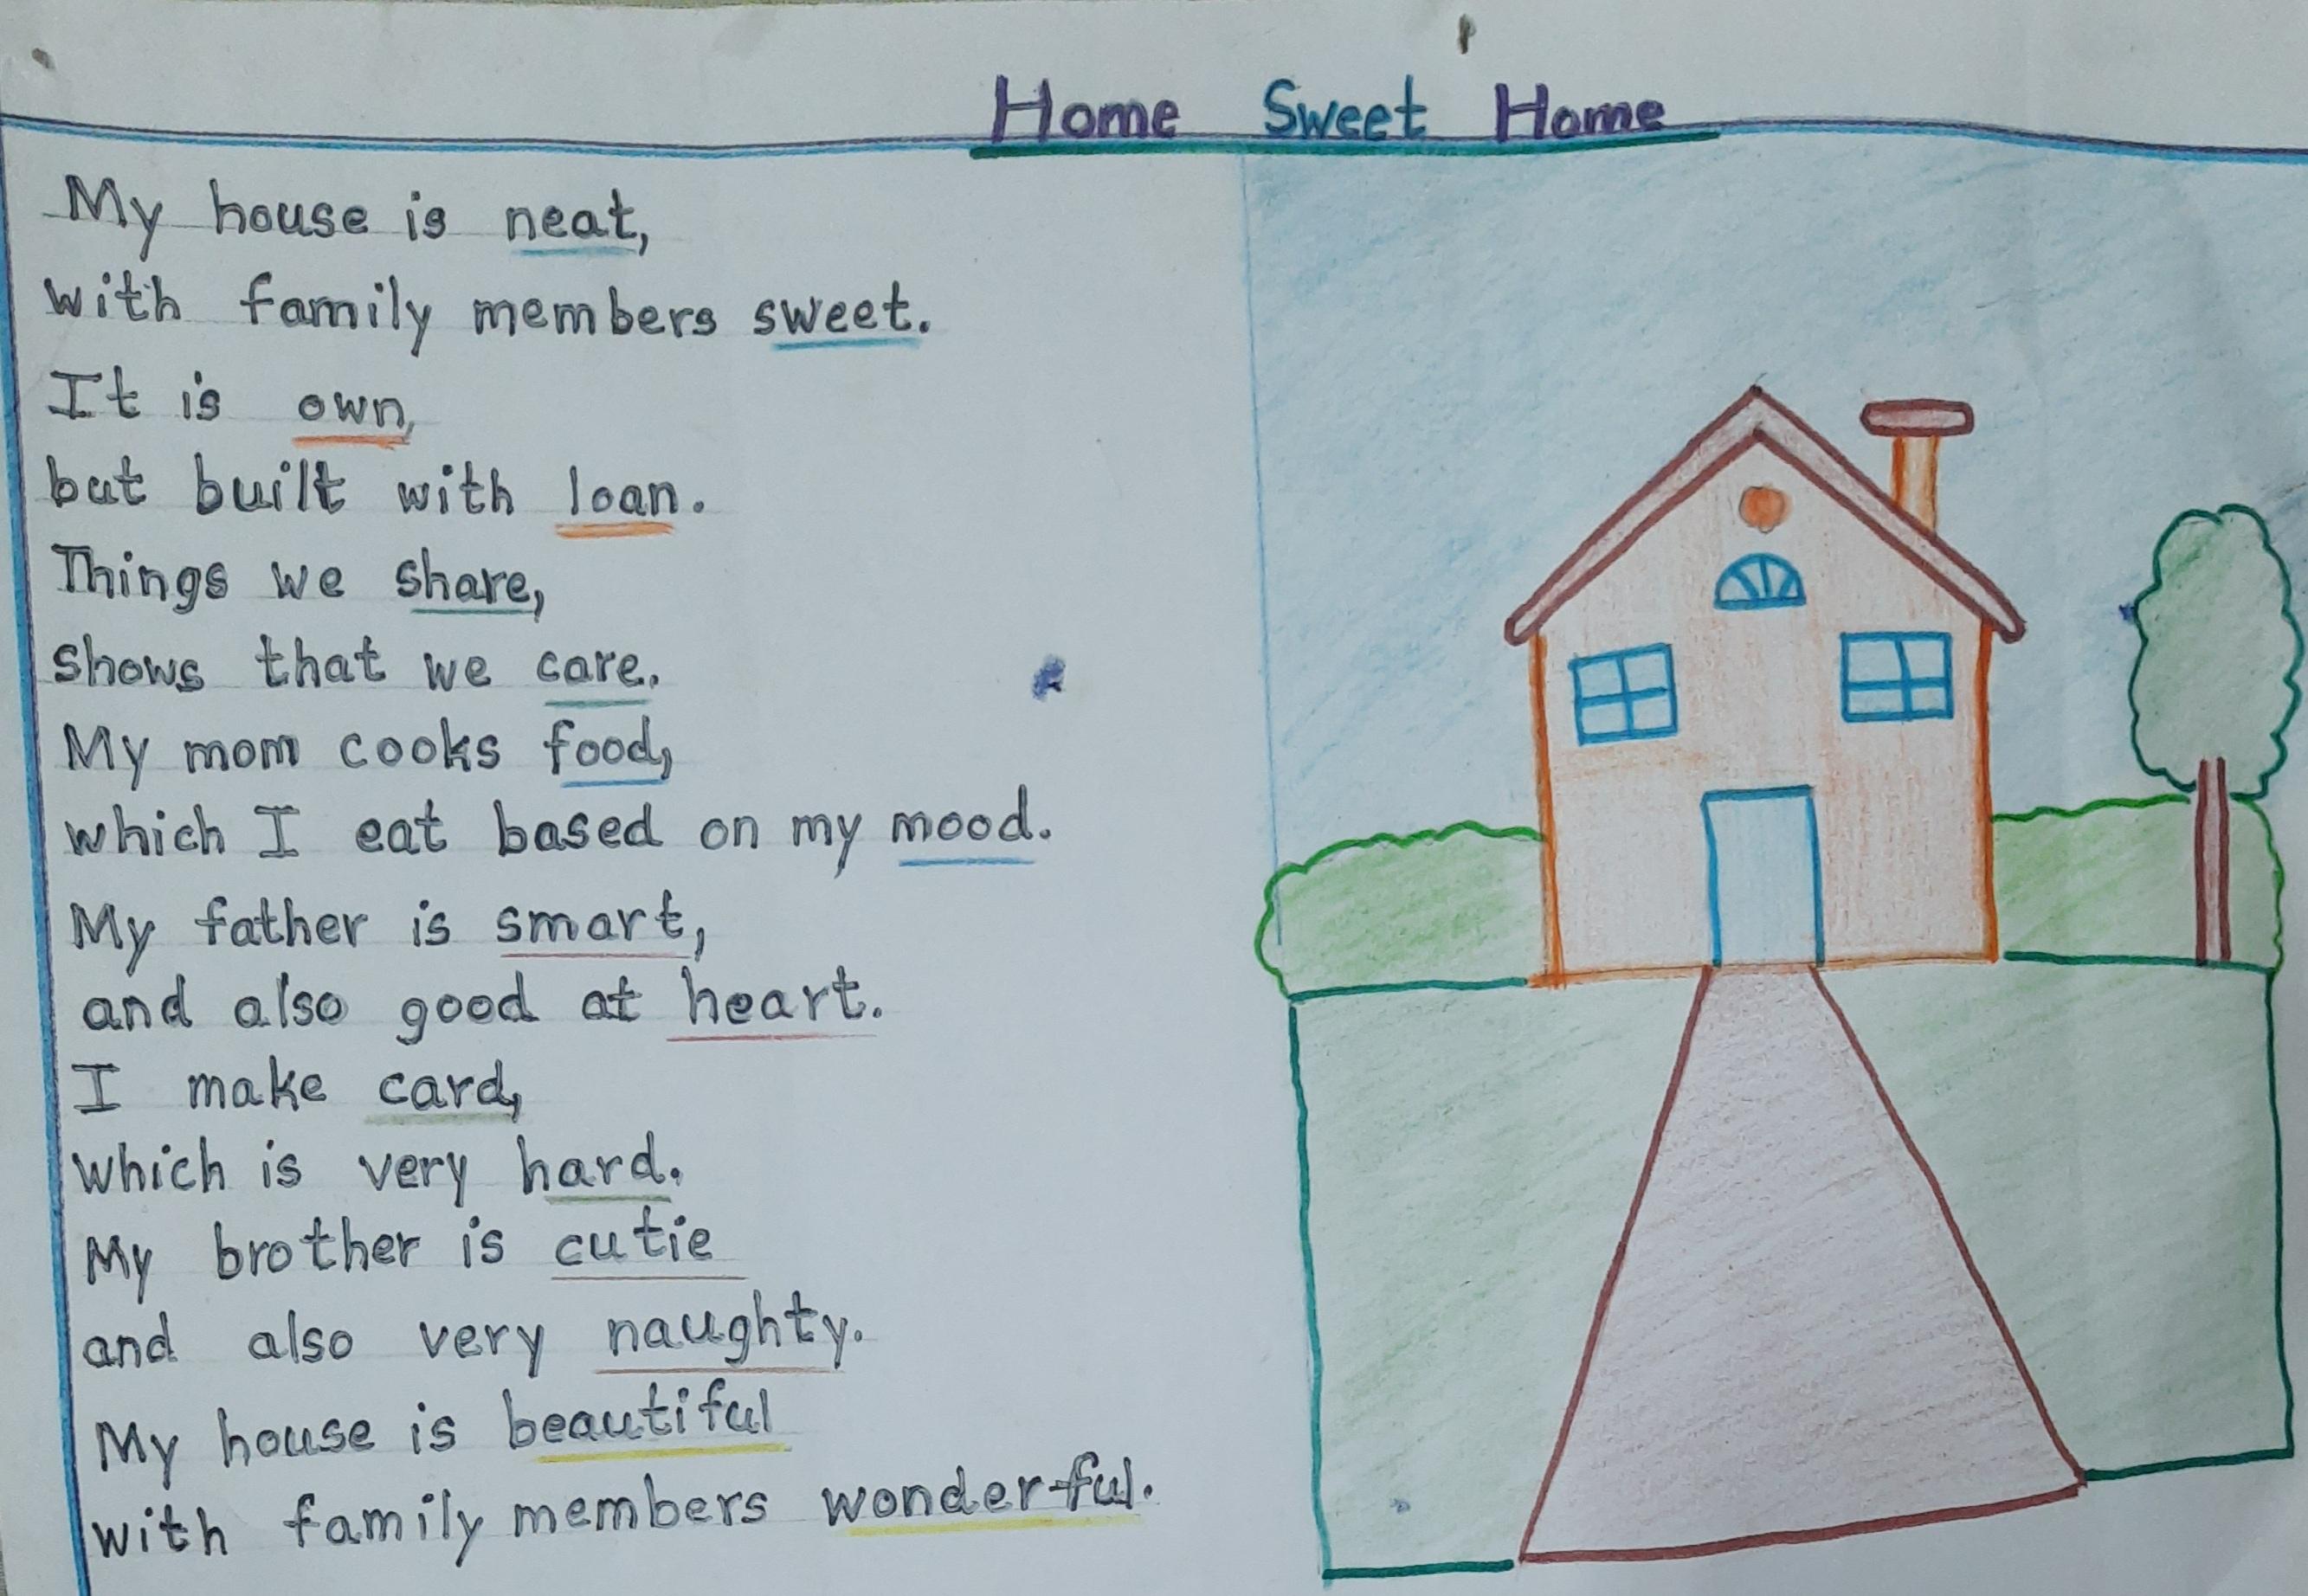 Home Sweet Home
My house is neat,
with family members sweet.
It is own,
but built with loan.
Things we share,
shows that we care.
My mom cooks food,
which I eat based on my mood.
My father is smart,
and also good at heart.
I make card,
which is very hard.
My brother is cutie
and also very naughty.
My house is beautiful
with family members wonderful.